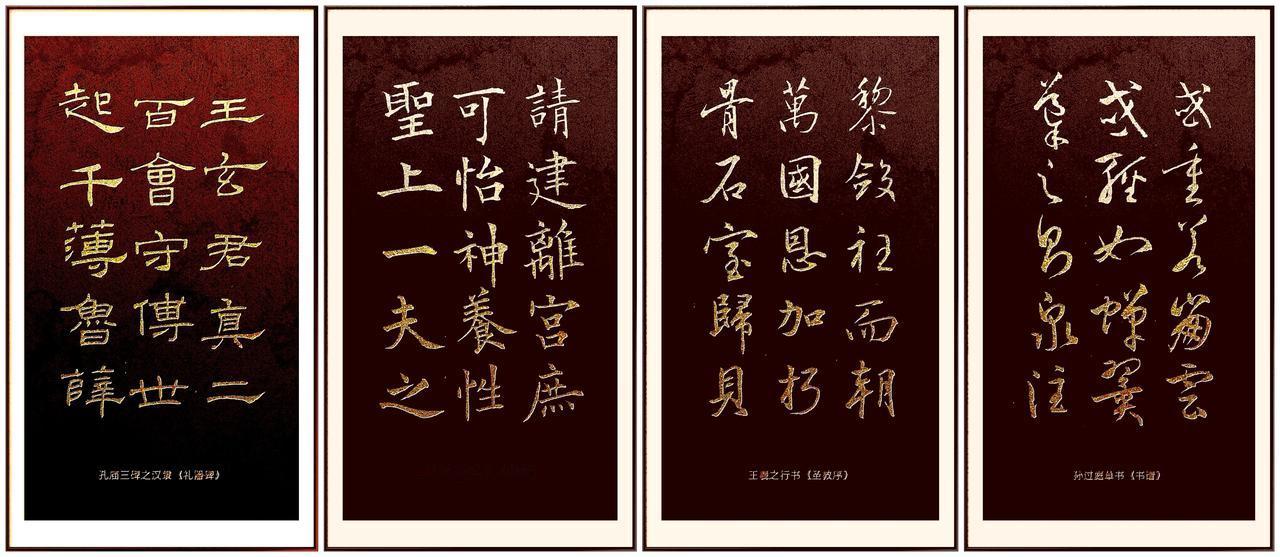 王玄君真二
百會守傳世
起千薄魯薛
孔庙三碑之汉隶《礼器碑》
請建離宮庶
可怡神養性
聖上一夫之
黎斂衽而朝
萬國恩加朽
骨石室歸貝
王羲之行书《圣教序》
或重若崩雲
或輕如蟬翼
導之則泉注
孙过庭草书《书谱》